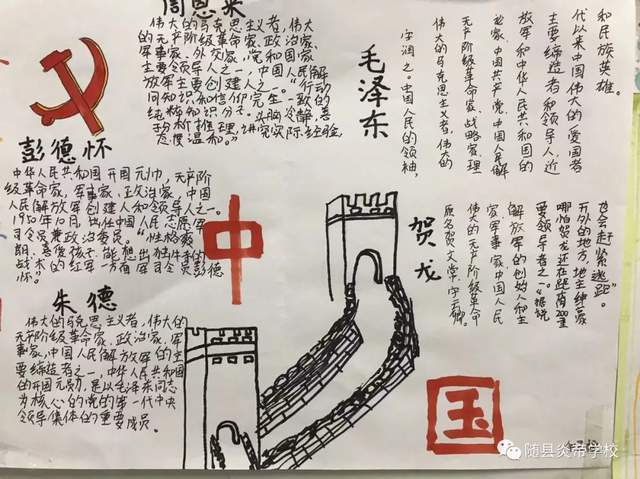 周恩来
伟大的马克思主义者,伟大
的无产阶级革命家、政治家、
军事家、外交家,党和国家
主要领导人之一,中国人民解
放军主要创建人之一。
问知识和信仰完生一致的
纯粹知识分子。头脑冷静,善
于分析推理,讲究实际经验
态度温和。
毛泽东
字润之。中国人民的领袖,
伟大的马克思主义者,伟大的
无产阶级革命家、战略家、理
论家,中国共产党、中国人民解
放军和中华人民共和国的
主要缔造者和领导人,近
代以来中国伟大的爱国者
和民族英雄。
彭德怀
中华人民共和国开国元帅,无产阶
级革命家,军事家、政治家,中国
人民解放军创建人和领导人之一。
1950年10月,出任中国人民志愿军
司令员兼政治委员。
朱德
伟大的马克思主义者,伟大的
无产阶级革命家,政治家,军
事家,中国人民解放军的主
要缔造者之一,中华人民共和国
的开国元勋,是以毛泽东同志
为核心的党的第一代中央
领导集体的重要成员。
贺龙
原名贺文常,字云卿。
伟大的无产阶级革命
家,军事家,中国人民
解放军的创始人和主
要领导者之一。“据说
哪怕贺龙还在距离200里
开外的地方,地主绅豪
也会赶紧逃跑”。
中
国
随县炎帝学校